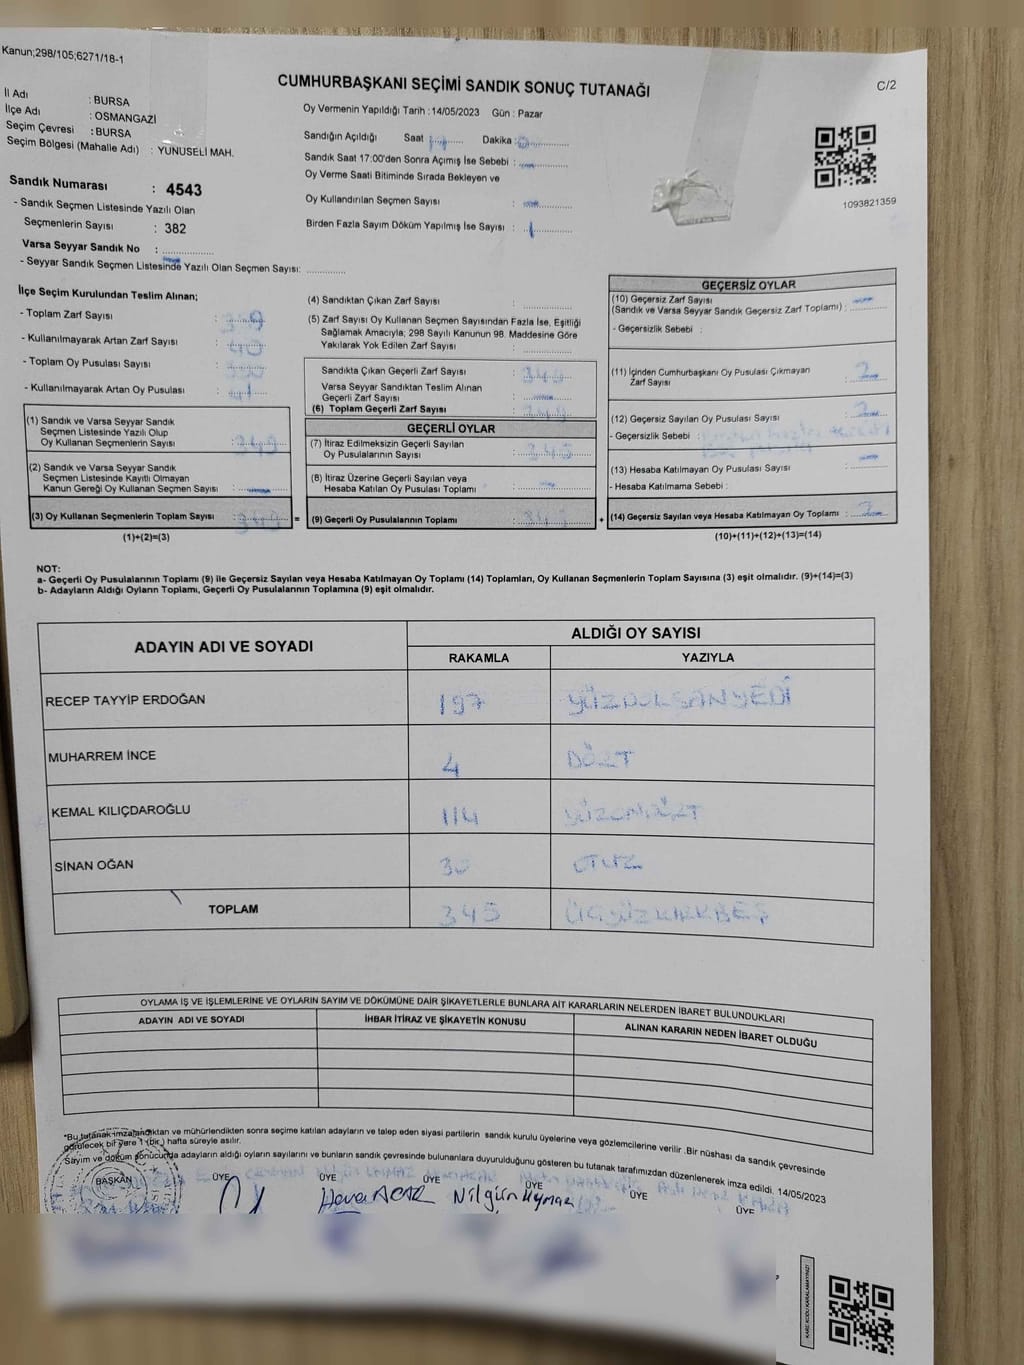 Kanun;298/105;6271/18-1
CUMHURBAŞKANI SEÇİMİ SANDIK SONUÇ TUTANAĞI
C/2
İl Adı : BURSA
İlçe Adı : OSMANGAZİ
Seçim Çevresi : BURSA
Seçim Bölgesi (Mahalle Adı) : YUNUSELİ MAH.
Sandık Numarası : 4543
- Sandık Seçmen Listesinde Yazılı Olan
Seçmenlerin Sayısı : 382
Varsa Seyyar Sandık No :
- Seyyar Sandık Seçmen Listesinde Yazılı Olan Seçmen Sayısı:
Oy Vermenin Yapıldığı Tarih : 14/05/2023 Gün : Pazar
Sandığın Açıldığı Saat Dakika :
Sandık Saat 17:00'den Sonra Açımış İse Sebebi :
Oy Verme Saati Bitiminde Sırada Bekleyen ve
Oy Kullandırılan Seçmen Sayısı :
Birden Fazla Sayım Döküm Yapılmış İse Sayısı : 1
1093821359
İlçe Seçim Kurulundan Teslim Alınan;
- Toplam Zarf Sayısı :
- Kullanılmayarak Artan Zarf Sayısı : 40
- Toplam Oy Pusulası Sayısı :
- Kullanılmayarak Artan Oy Pusulası : 41
(1) Sandık ve Varsa Seyyar Sandık
Seçmen Listesinde Yazılı Olup
Oy Kullanan Seçmenlerin Sayısı : 349
(2) Sandık ve Varsa Seyyar Sandık
Seçmen Listesinde Kayıtlı Olmayan
Kanun Gereği Oy Kullanan Seçmen Sayısı :
(3) Oy Kullanan Seçmenlerin Toplam Sayısı : 349 =
(1)+(2)=(3)
(4) Sandıktan Çıkan Zarf Sayısı :
(5) Zarf Sayısı Oy Kullanan Seçmen Sayısından Fazla İse, Eşitliği
Sağlamak Amacıyla; 298 Sayılı Kanunun 98. Maddesine Göre
Yakılarak Yok Edilen Zarf Sayısı :
Sandıkta Çıkan Geçerli Zarf Sayısı : 349
Varsa Seyyar Sandıktan Teslim Alınan
Geçerli Zarf Sayısı :
(6) Toplam Geçerli Zarf Sayısı : 349
GEÇERLİ OYLAR
(7) İtiraz Edilmeksizin Geçerli Sayılan
Oy Pusulalarının Sayısı : 345
(8) İtiraz Üzerine Geçerli Sayılan veya
Hesaba Katılan Oy Pusulası Toplamı :
(9) Geçerli Oy Pusulalarının Toplamı : 345 +
GEÇERSİZ OYLAR
(10) Geçersiz Zarf Sayısı
(Sandık ve Varsa Seyyar Sandık Geçersiz Zarf Toplamı) :
- Geçersizlik Sebebi :
(11) İçinden Cumhurbaşkanı Oy Pusulası Çıkmayan
Zarf Sayısı : 2
(12) Geçersiz Sayılan Oy Pusulası Sayısı : 2
- Geçersizlik Sebebi :
(13) Hesaba Katılmayan Oy Pusulası Sayısı :
- Hesaba Katılmama Sebebi :
(14) Geçersiz Sayılan veya Hesaba Katılmayan Oy Toplamı :
(10)+(11)+(12)+(13)=(14)
NOT:
a- Geçerli Oy Pusulalarının Toplamı (9) ile Geçersiz Sayılan veya Hesaba Katılmayan Oy Toplamı (14) Toplamları, Oy Kullanan Seçmenlerin Toplam Sayısına (3) eşit olmalıdır. (9)+(14)=(3)
b- Adayların Aldığı Oyların Toplamı, Geçerli Oy Pusulalarının Toplamına (9) eşit olmalıdır.
ADAYIN ADI VE SOYADI ALDIĞI OY SAYISI
RAKAMLA YAZIYLA
RECEP TAYYİP ERDOĞAN 197 YÜZDOKSANYEDİ
MUHARREM İNCE 4 DÖRT
KEMAL KILIÇDAROĞLU 114 YÜZONDÖRT
SİNAN OĞAN 30 OTUZ
TOPLAM 345 ÜÇYÜZKIRKBEŞ
OYLAMA İŞ VE İŞLEMLERİNE VE OYLARIN SAYIM VE DÖKÜMÜNE DAİR ŞİKAYETLERLE BUNLARA AİT KARARLARIN NELERDEN İBARET BULUNDUKLARI
ADAYIN ADI VE SOYADI İHBAR İTİRAZ VE ŞİKAYETİN KONUSU ALINAN KARARIN NEDEN İBARET OLDUĞU
*Bu tutanak imzalandıktan ve mühürlendikten sonra seçime katılan adayların ve talep eden siyasi partilerin sandık kurulu üyelerine veya gözlemcilerine verilir. Bir nüshası da sandık çevresinde
görülecek bir yere 1 (bir) hafta süreyle asılır.
Sayım ve döküm sonucunda adayların aldığı oyların sayılarını ve bunların sandık çevresinde bulunanlara duyurulduğunu gösteren bu tutanak tarafımızdan düzenlenerek imza edildi. 14/05/2023
BAŞKAN ÜYE ÜYE ÜYE ÜYE ÜYE ÜYE
Nilgün
KARE KODU KARALAMAYINIZ!